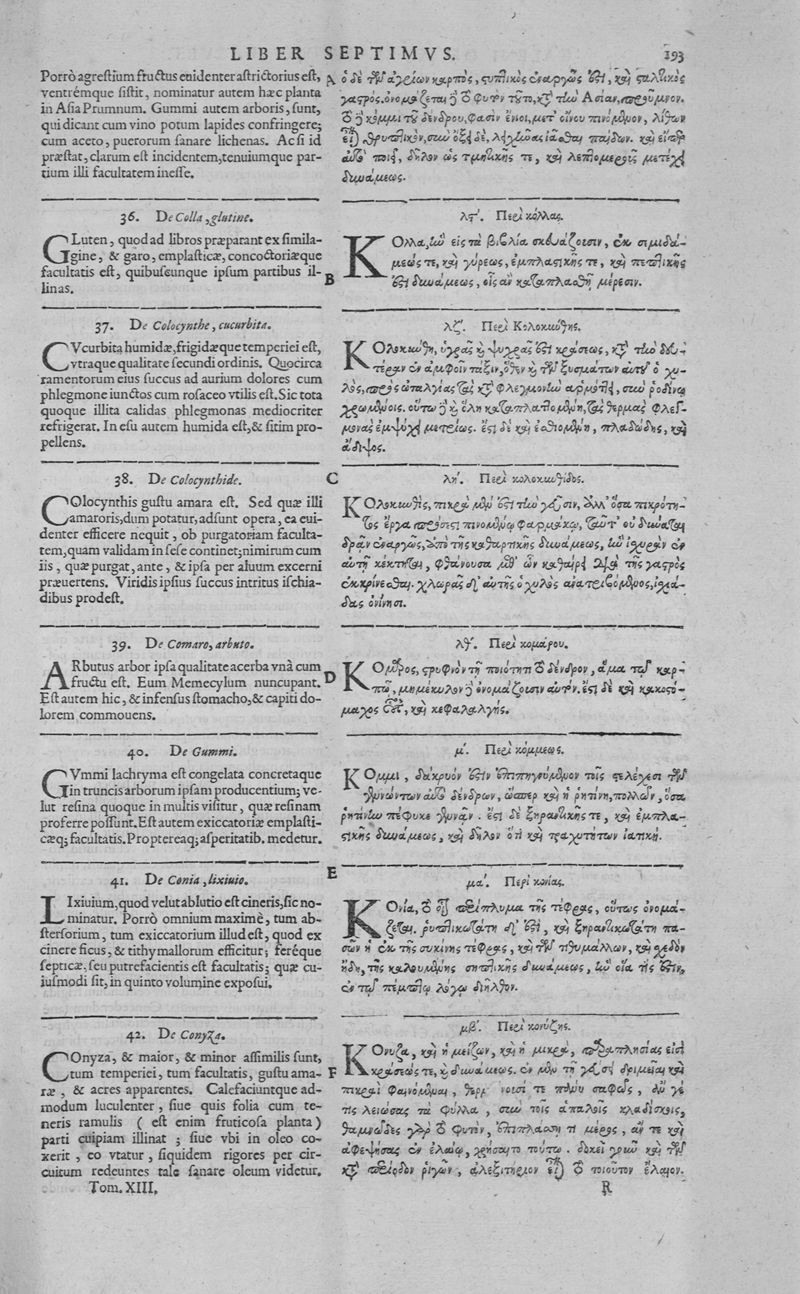 LIBER SEPTIMVS.
193
Porrò agreſtium fructus euidenter aſtrictorius eſt,
ventrémque ſiſtit, nominatur autem hæc planta
in Aſia Prumnum. Gummi autem arboris, ſunt,
qui dicant cum vino potum lapides confringere;
cum aceto, puerorum ſanare lichenas. Ac ſi id
præſtat, clarum eſt incidentem, tenuiumque par-
tium illi facultatem ineſſe.
36. De Colla, glutine.
GLuten, quod ad libros præparant ex ſimila-
gine, & garo, emplaſticæ, concoctoriæque
facultatis eſt, quibuſcunque ipſum partibus il-
linas.
37. De Colocynthe, cucurbita.
CVcurbita humidæ, frigidæque temperiei eſt,
vtraque qualitate ſecundi ordinis. Quocirca
ramentorum eius ſuccus ad aurium dolores cum
phlegmone iunctos cum roſaceo vtilis eſt. Sic tota
quoque illita calidas phlegmonas mediocriter
refrigerat. In eſu autem humida eſt, & ſitim pro-
pellens.
38. De Colocynthide.
COlocynthis guſtu amara eſt. Sed quæ illi
amaroris, dum potatur, adſunt opera, ea eui-
denter efficere nequit, ob purgatoriam faculta-
tem, quam validam in ſeſe continet; nimirum cum
iis, quæ purgat, ante, & ipſa per aluum excerni
præuertens. Viridis ipſius ſuccus intritus iſchia-
dibus prodeſt.
39. De Comaro, arbuto.
ARbutus arbor ipſa qualitate acerba vnà cum
fructu eſt. Eum Memecylum nuncupant.
Eſt autem hic, & infenſus ſtomacho, & capiti do-
lorem commouens.
40. De Gummi.
GVmmi lachryma eſt congelata concretaque
in truncis arborum ipſam producentium; ve-
lut reſina quoque in multis viſitur, quæ reſinam
proferre poſſunt. Eſt autem exiccatoriæ emplaſti-
cæq; facultatis. Proptereaq; aſperitatib. medetur.
41. De Conia, lixiuio.
LIxiuium, quod velut ablutio eſt cineris, ſic no-
minatur. Porrò omnium maximè, tum ab-
ſterſorium, tum exiccatorium illud eſt, quod ex
cinere ficus, & tithymallorum efficitur; feréque
ſepticæ, ſeu putrefacientis eſt facultatis; quæ cu-
iuſmodi ſit, in quinto volumine expoſui.
42. De Conyza.
COnyza, & maior, & minor aſſimilis ſunt,
tum temperiei, tum facultatis, guſtu ama-
ræ, & acres apparentes. Calefaciuntque ad-
modum luculenter, ſiue quis folia cum te-
neris ramulis ( eſt enim fruticoſa planta )
parti cuipiam illinat ; ſiue vbi in oleo co-
xerit, eo vtatur, ſiquidem rigores per cir-
cuitum redeuntes tale ſanare oleum videtur.
Tom. XIII.
A
B
C
D
E
F
ὁ δὲ τῶν ἀγρίων καρπὸς, στυπτικὸς ἐναργῶς ἐστὶ, καὶ σταλτικὸς
γαστρός. ὀνομάζεται δὲ τὸ φυτὸν τοῦτο, κατὰ τὴν Ἀσίαν, προῦμνον.
τὸ δὲ κόμμι τοῦ δένδρου, φασὶν ἔνιοι, μετ' οἴνου πινόμενον, λίθων
εἶναι θρυπτικὸν, σὺν ὄξει δὲ, λειχῆνας ἰᾶσθαι παίδων. καὶ εἴπερ
αὐτὸ ποιεῖ, δῆλον ὡς τμητικῆς τε, καὶ λεπτομεροῦς μετέχει
δυνάμεως.
λστ'. Περὶ κόλλας.
ΚΟλλα, ἣν εἰς τὰ βιβλία σκευάζουσιν, ἐκ σιμιδά-
μεώς τε, καὶ γύρεως, ἐμπλαστικῆς τε, καὶ πεπτικῆς
ἐστὶ δυνάμεως, οἷς ἂν καταπλασθῇ μέρεσιν.
λζ'. Περὶ Κολοκύνθης.
ΚΟλοκύνθη, ὑγρᾶς καὶ ψυχρᾶς ἐστὶ κράσεως, κατὰ τὴν δευ-
τέραν ἐν ἀμφοῖν τάξιν, ὅθεν καὶ τῶν ξυσμάτων αὐτῆς ὁ χυ-
λὸς, πρὸς ὠταλγίας τὰς κατὰ φλεγμονὴν ἁρμόττει, σὺν ῥοδίνῳ
χρωμένοις. οὕτω δὲ καὶ ὅλη καταπλαττομένη, τὰς θερμὰς φλεγ-
μονὰς ἐμψύχει μετρίως. ἔστι δὲ καὶ ἐσθιομένη, πλαδώδης, καὶ
ἄδιψος.
λη'. Περὶ κολοκυνθίδος.
ΚΟλοκυνθὶς, πικρὰ μέν ἐστι τὴν γεῦσιν, ἀλλ' ὅσα πικρότη-
τος ἔργα πρόσεστι πινομένῳ φαρμάκῳ, ταῦτ' οὐ δύναται
δρᾶν ἐναργῶς, ὑπὸ τῆς καθαρτικῆς δυνάμεως, ἣν ἰσχυρὰν ἐν
αὑτῇ κέκτηται, φθάνουσα μεθ' ὧν καθαίρει διὰ τῆς γαστρὸς
ἐκκρίνεσθαι. χλωρᾶς δ' αὐτῆς ὁ χυλὸς ἀνατριβόμενος, ἰσχιά-
δας ὀνίνησι.
λθ'. Περὶ κομάρου.
ΚΟμαρος, στρυφνὸν τῇ ποιότητι τὸ δένδρον, ἅμα τῷ καρ-
πῷ, μημέκυλον δὲ ὀνομάζουσιν αὐτόν. ἔστι δὲ καὶ κακοστό-
μαχος οὗτος, καὶ κεφαλαλγής.
μ'. Περὶ κόμμεως.
ΚΟμμι, δάκρυόν ἐστιν ἐπιπηγνύμενον τοῖς στελέχεσι τῶν
γεννώντων αὐτὸ δένδρων, ὥσπερ καὶ ἡ ῥητίνη, πολλῶν, ὅσα
ῥητίνην πέφυκε γεννᾶν. ἔστι δὲ ξηραντικῆς τε, καὶ ἐμπλα-
στικῆς δυνάμεως, καὶ δῆλον ὅτι καὶ τραχυτήτων ἰατική.
μα'. Περὶ κονίας.
ΚΟνία, τὸ οἷον περίπλυμα τῆς τέφρας, οὕτως ὀνομά-
ζεται. ῥυπτικωτάτη δ' ἐστὶ, καὶ ξηραντικωτάτη πα-
σῶν ἡ ἐκ τῆς συκίνης τέφρας, καὶ τῶν τιθυμάλλων, καὶ σχεδὸν
ἤδη, τῆς καλουμένης σηπτικῆς δυνάμεως, ἣν οἵα τίς ἐστιν,
ἐν τῷ πέμπτῳ λόγῳ διῆλθον.
μβ'. Περὶ κονύζης.
ΚΟνυζα, καὶ ἡ μείζων, καὶ ἡ μικρὰ, παραπλησίας εἰσὶ
κράσεώς τε, καὶ δυνάμεως. ἐν μὲν τῇ γεύσει δριμεῖαι καὶ
πικραὶ φαινόμεναι, θερμαίνουσί τε πάνυ σαφῶς, ἄν γέ
τις λειώσας τὰ φύλλα, σὺν τοῖς ἁπαλοῖς κλαδίσκοις,
θαμνῶδες γὰρ τὸ φυτὸν, ἐπιπλάσῃ τι μέρος, ἄν τε καὶ
ἀφεψήσας ἐν ἐλαίῳ, χρήσαιτο τούτῳ. δοκεῖ γοῦν καὶ τῶν
κατὰ περίοδον ῥιγῶν, ἀλεξιτήριον εἶναι τὸ τοιοῦτον ἔλαιον.
R